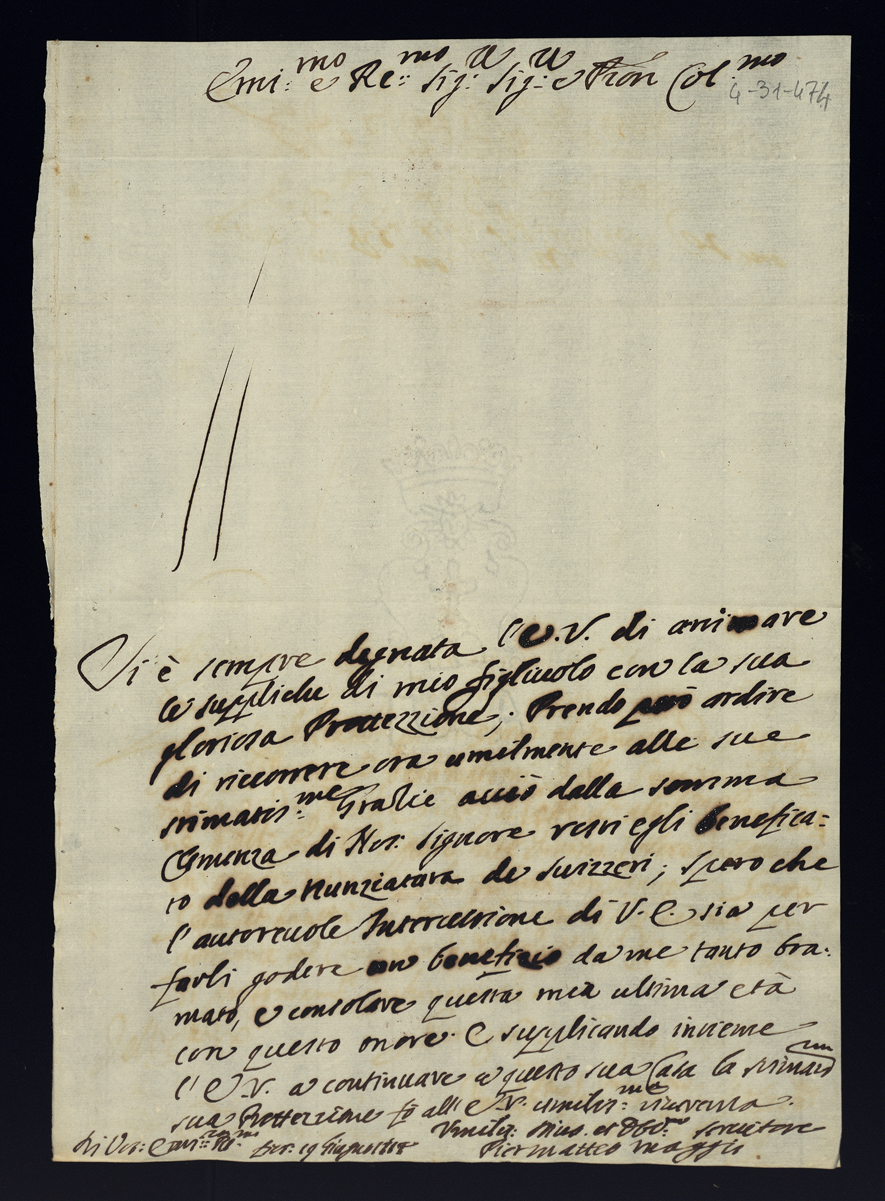 Emi:mo e Re:mo Sig:r Sig:r e Pron Col:mo
4-31-474
Si è sempre degnata l'E.V. di animare
le suppliche di mio figliuolo con la sua
gloriosa Protezzione; Prendo però ardire
di riccorrere ora umilmente alle sue
stimatis:me Grazie acciò dalla somma
Clemenza di Nos: Signore resti egli benefica=
to della Nunziatura de Suizzeri; spero che
l'autoreuole Intercessione di V.E. sia per
farli godere un benefizio da me tanto bra:
mato, e consolare questa mia ultima età
con questo onore. E supplicando insieme
l'E.V. a continuare a questa sua Casa la stimatma
sua Protezzione fo all'E.V. umilis:ma riuerenza.
Di Vos: Emi:za Re:ma
Umilis: Diuo. et Obl:mo seruitore
Piermatteo Maggi